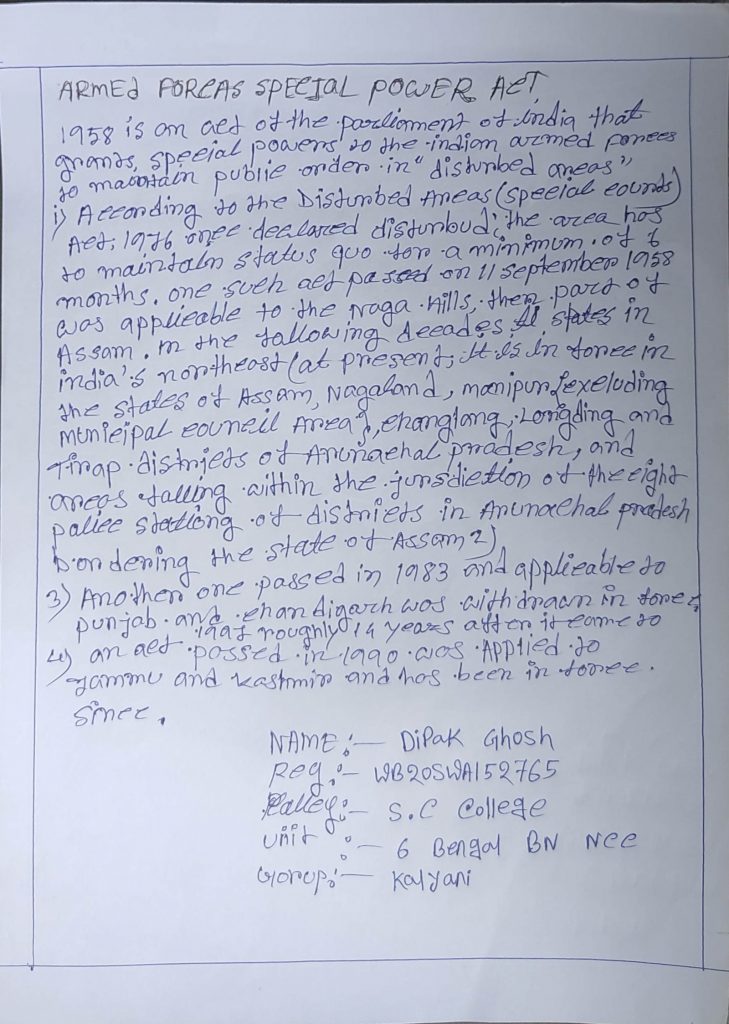 ARMED FORCAS SPECIAL POWER ACT
1958 is an act of the parliament of india that
grants, special powers to the indian armed forces
to maintain public order in "disturbed areas"
i) According to the Disturbed Areas (special counds)
Act, 1976 once declared disturbud; the area has
to maintain status quo for a minimum of 6
months. one such act passed on 11 september 1958
was applicable to the Naga Hills, then part of
Assam. In the following decades states in
india's northeast (at present, it is in force in
the states of Assam, Nagaland, manipur {excluding
municipal council Area}, changlang, Longding and
Tirap districts of Arunachal pradesh, and
areas falling within the jursdiction of the eight
police stations of districts in Arunachal pradesh
bordering the state of Assam 2)
3) Another one passed in 1983 and applicable to
punjab and chandigarh was withdrawn in
1997 roughly 14 years after it came to force,
4) an act passed in 1990 was Applied to
jammu and kashmir and has been in force.
since.
NAME :- Dipak Ghosh
Reg :- WB20SWA152765
:- S.C College
unit :- 6 Bengal BN Ncc
Gorup :- Kalyani